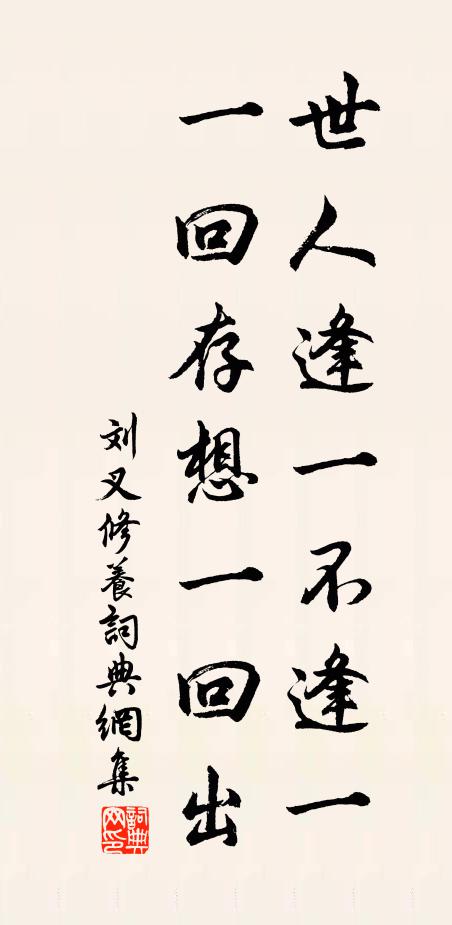 世人逢一不逢一
一回存想一回出
刘叉修養詞典網集
詞典网印